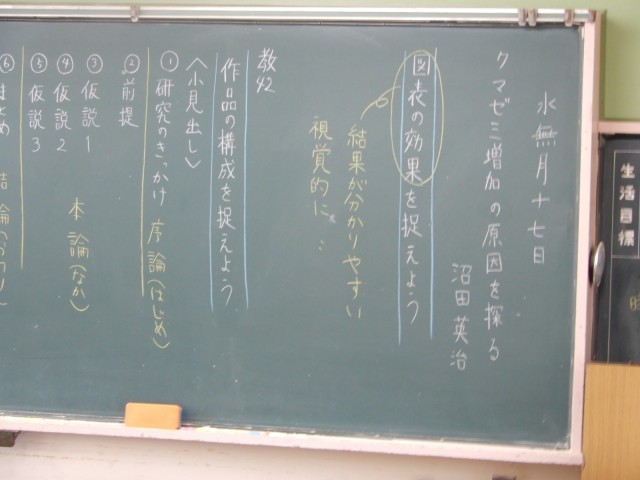 水無月十七日
クマゼミ増加の原因を探る
沼田英治
図表の効果を捉えよう
結果が分かりやすい
視覚的に
教42
作品の構成を捉えよう
〈小見出し〉
①研究のきっかけ 序論(はじめ)
②前提
③仮説1
④仮説2 本論(なか)
⑤仮説3
⑥まとめ 結論(おわり)
生活目標